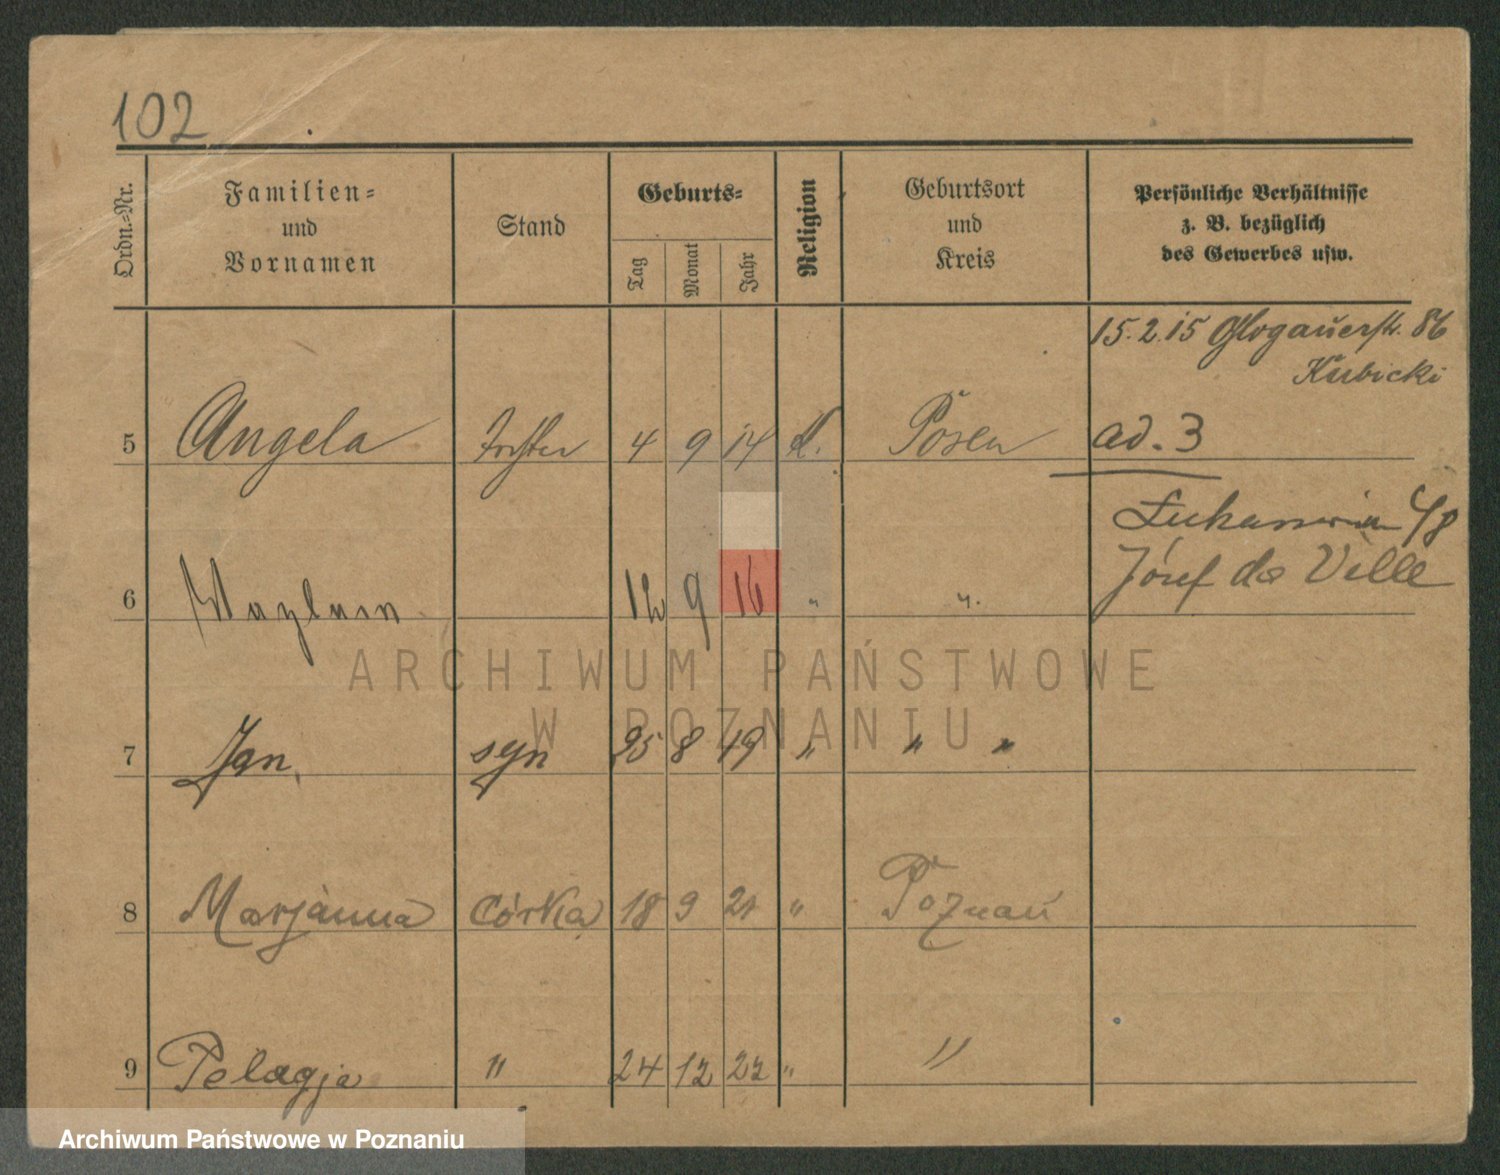 102
Ordn.-Nr.
Familien-
und
Vornamen
Stand
Geburts-
Tag
Monat
Jahr
Religion
Geburtsort
und
Kreis
Persönliche Verhältnisse
z. B. bezüglich
des Gewerbes usw.
15.2.15 Glogauerstr. 86
Kubicki
5 Angela Tochter 4 9 14 k. Posen ad. 3
48
Józef da Ville
6 12 9 16 " "
ARCHIWUM PAŃSTWOWE
W POZNANIU
7 Jan syn 25 8 19 " " "
8 Marjanna córka 18 9 21 " Poznań
9 Pelagja " 24 12 22 " "
Archiwum Państwowe w Poznaniu